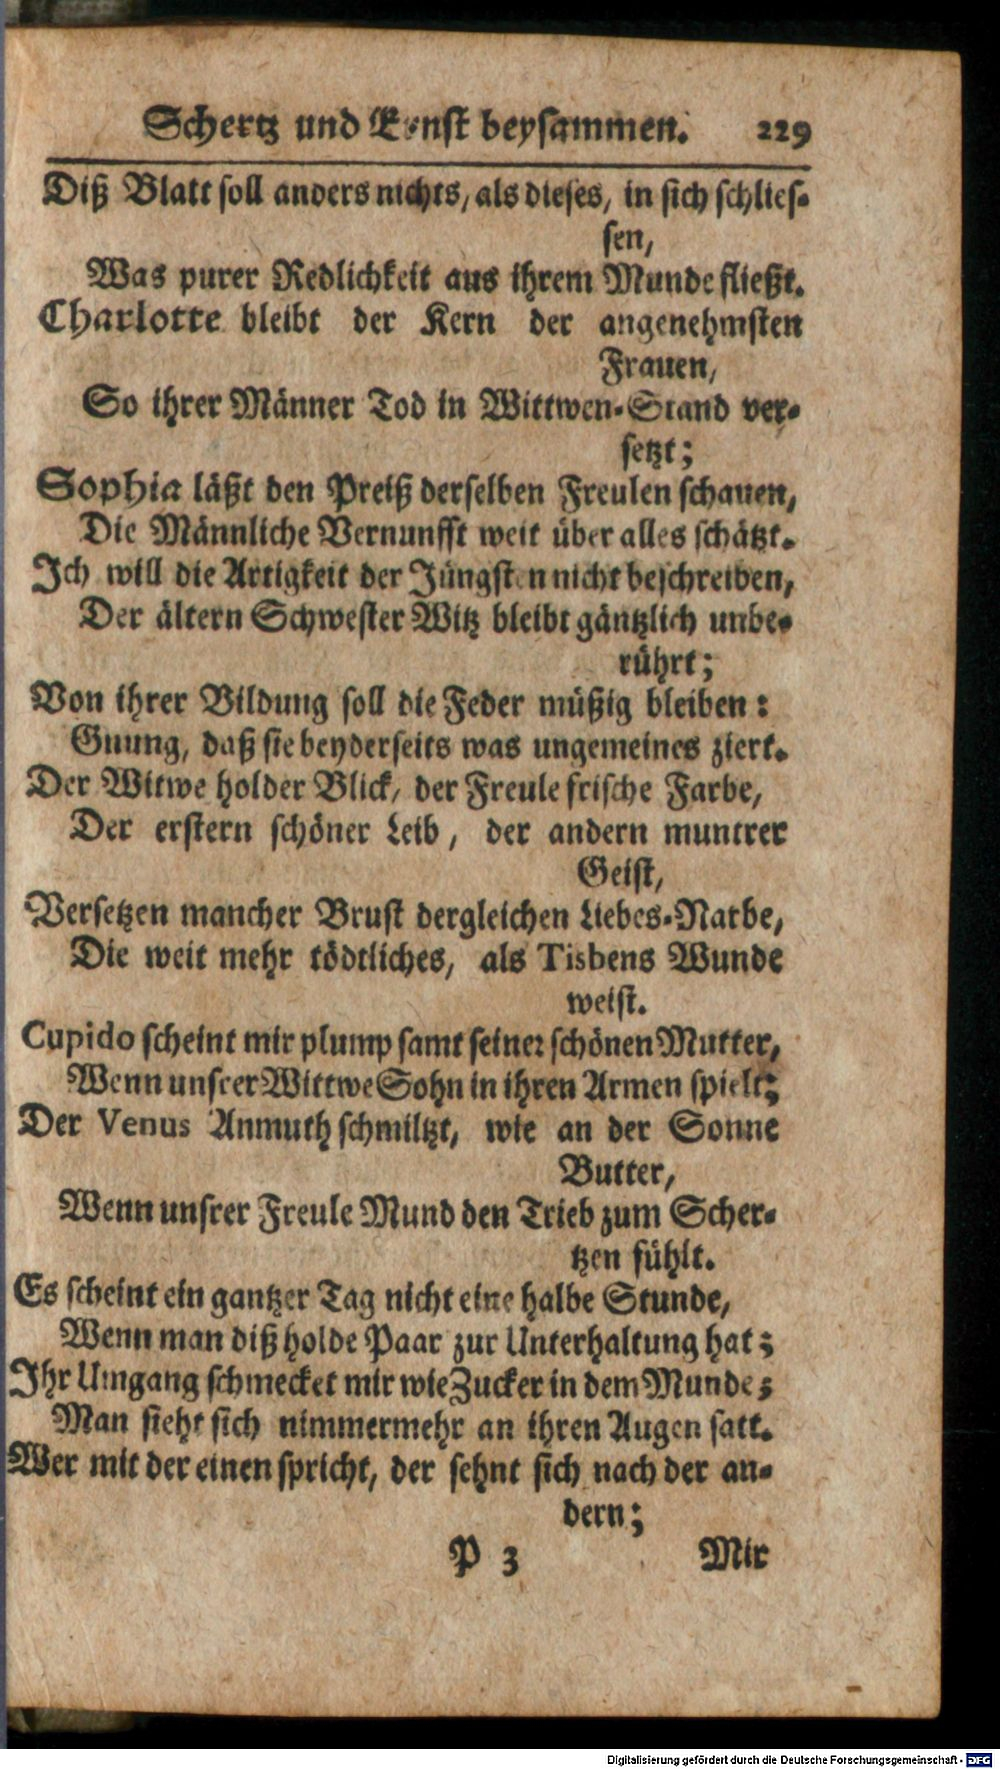 Schertz und Ernst beysammen. 229
Diß Blatt soll anders nichts, als dieses, in sich schlies-
sen,
Was purer Redlichkeit aus ihrem Munde fließt.
Charlotte bleibt der Kern der angenehmsten
Frauen,
So ihrer Männer Tod in Wittwen-Stand ver-
setzt;
Sophia läßt den Preiß derselben Freulen schauen,
Die Männliche Vernunfft weit über alles schätzt.
Ich will die Artigkeit der Jüngsten nicht beschreiben,
Der ältern Schwester Witz bleibt gäntzlich unbe-
rührt;
Von ihrer Bildung soll die Feder müßig bleiben:
Gnung, daß sie beyderseits was ungemeines ziert.
Der Witwe holder Blick, der Freule frische Farbe,
Der erstern schöner Leib, der andern muntrer
Geist,
Versetzen mancher Brust dergleichen Liebes-Narbe,
Die weit mehr tödtliches, als Tisbens Wunde
weist.
Cupido scheint mir plump samt seiner schönen Mutter,
Wenn unsrer Wittwe Sohn in ihren Armen spielt;
Der Venus Anmuth schmiltzt, wie an der Sonne
Butter,
Wenn unsrer Freule Mund den Trieb zum Scher-
tzen fühlt.
Es scheint ein gantzer Tag nicht eine halbe Stunde,
Wenn man diß holde Paar zur Unterhaltung hat;
Ihr Umgang schmecket mir wie Zucker in dem Munde;
Man sieht sich nimmermehr an ihren Augen satt.
Wer mit der einen spricht, der sehnt sich nach der an-
dern;
P 3 Mir
Digitalisierung gefördert durch die Deutsche Forschungsgemeinschaft - DFG